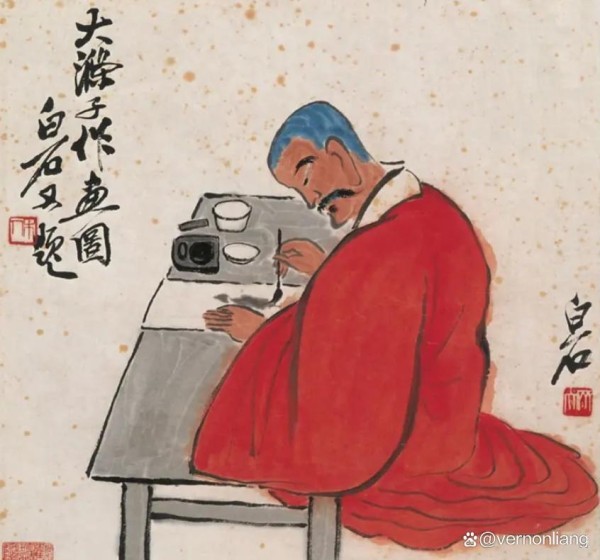 大滌子作畫圖
白石又題
白石
@vernonliang